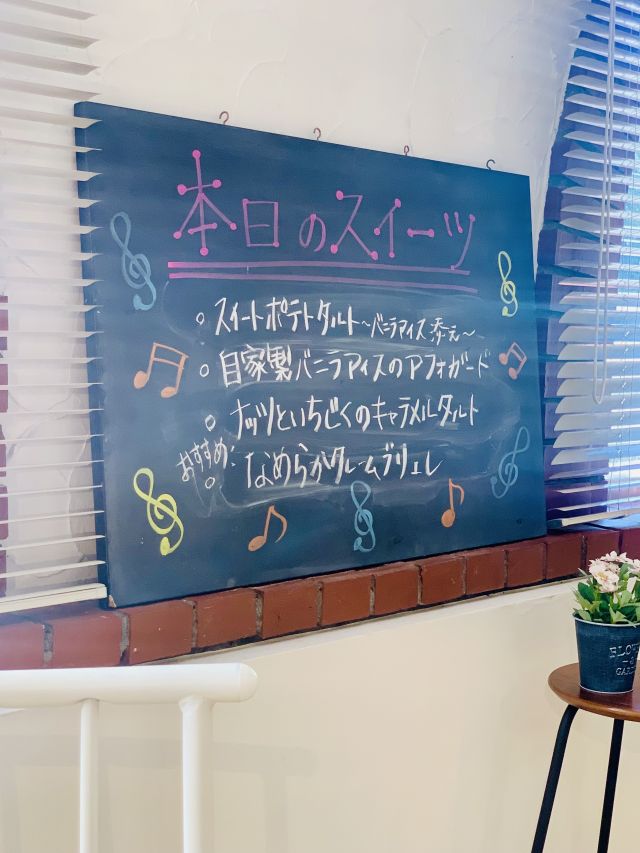 本日のスイーツ
○ スイートポテトタルト〜バニラアイス添え〜
○ 自家製バニラアイスのアフォガード
○ ナッツといちじくのキャラメルタルト
おすすめ!
○ なめらかクレームブリュレ
FLOW
&
GARD